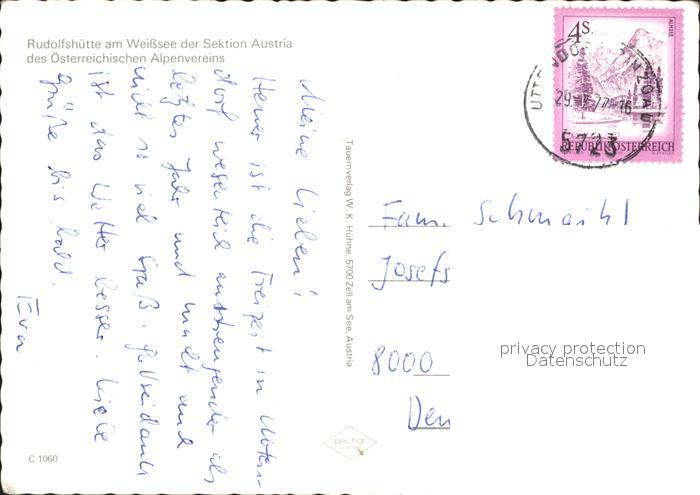 Rudolfshütte am Weißsee der Sektion Austria
des Österreichischen Alpenvereins
Meine Lieben!
Heuer ist die Freizeit in Uttendorf
wesentlich anstrengender als
letztes Jahr und macht auch
nicht so viel Spaß. Gottseidank
ist das Wetter besser. Liebe
Grüße bis bald.
Eva
C 1060
Tauernverlag W. K. Hühne, 5700 Zell am See, Austria
4 S
ALMSEE
REPUBLIK ÖSTERREICH
5723
Fam. Schmaihl
Josefs
8000
privacy protection
Datenschutz